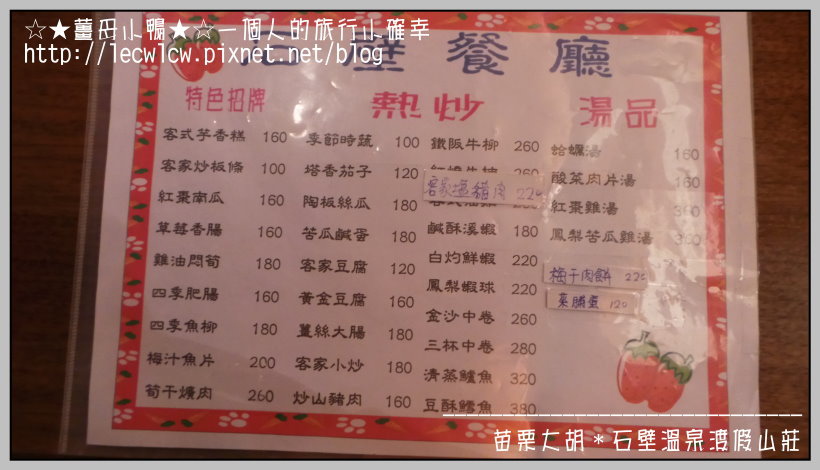 ☆★薑母小鴨★☆一個人的旅行小確幸
http://lecwlcw.pixnet.net/blog
石壁餐廳
特色招牌
客式芋香糕 160
客家炒板條 100
紅棗南瓜 160
草莓香腸 160
雞油悶筍 180
四季肥腸 160
四季魚柳 180
梅汁魚片 200
筍干爌肉 260
熱炒
季節時蔬 100
塔香茄子 120
陶板絲瓜 180
苦瓜鹹蛋 180
客家豆腐 120
黃金豆腐 160
薑絲大腸 180
客家小炒 180
炒山豬肉 160
鐵阪牛柳 260
客家塩豬肉 220
鹹酥溪蝦 180
白灼鮮蝦 220
鳳梨蝦球 220
金沙中卷 260
三杯中卷 280
清蒸鱸魚 320
豆酥鱈魚 380
湯品
蛤蠣湯 160
酸菜肉片湯 160
紅棗雞湯 360
鳳梨苦瓜雞湯 360
梅干肉餅 220
菜脯蛋 120
苗栗大胡*石壁溫泉渡假山莊